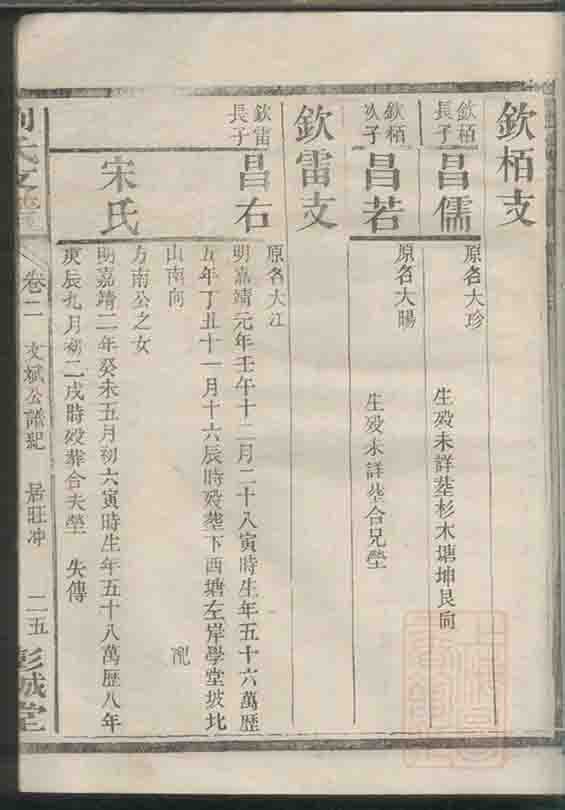 欽栢支
欽栢長子
昌儒
原名大珍
生殁未詳塟杉木塘坤艮向
欽栢次子
昌若
原名大暘
生殁未詳塟合兄塋
欽雷支
欽雷長子
昌右
原名大江
明嘉靖元年壬午十二月二十八寅時生年五十六萬歷
五年丁丑十一月十六辰時殁塟下西塘左岸學堂坡北
山南向
配
宋氏
方南公之女
明嘉靖二年癸未五月初六寅時生年五十八萬歷八年
庚辰九月初二戌時殁葬合夫塋 失傳
劉氏支譜
卷二
文斌公譜紀
居旺冲
二五
彭城堂